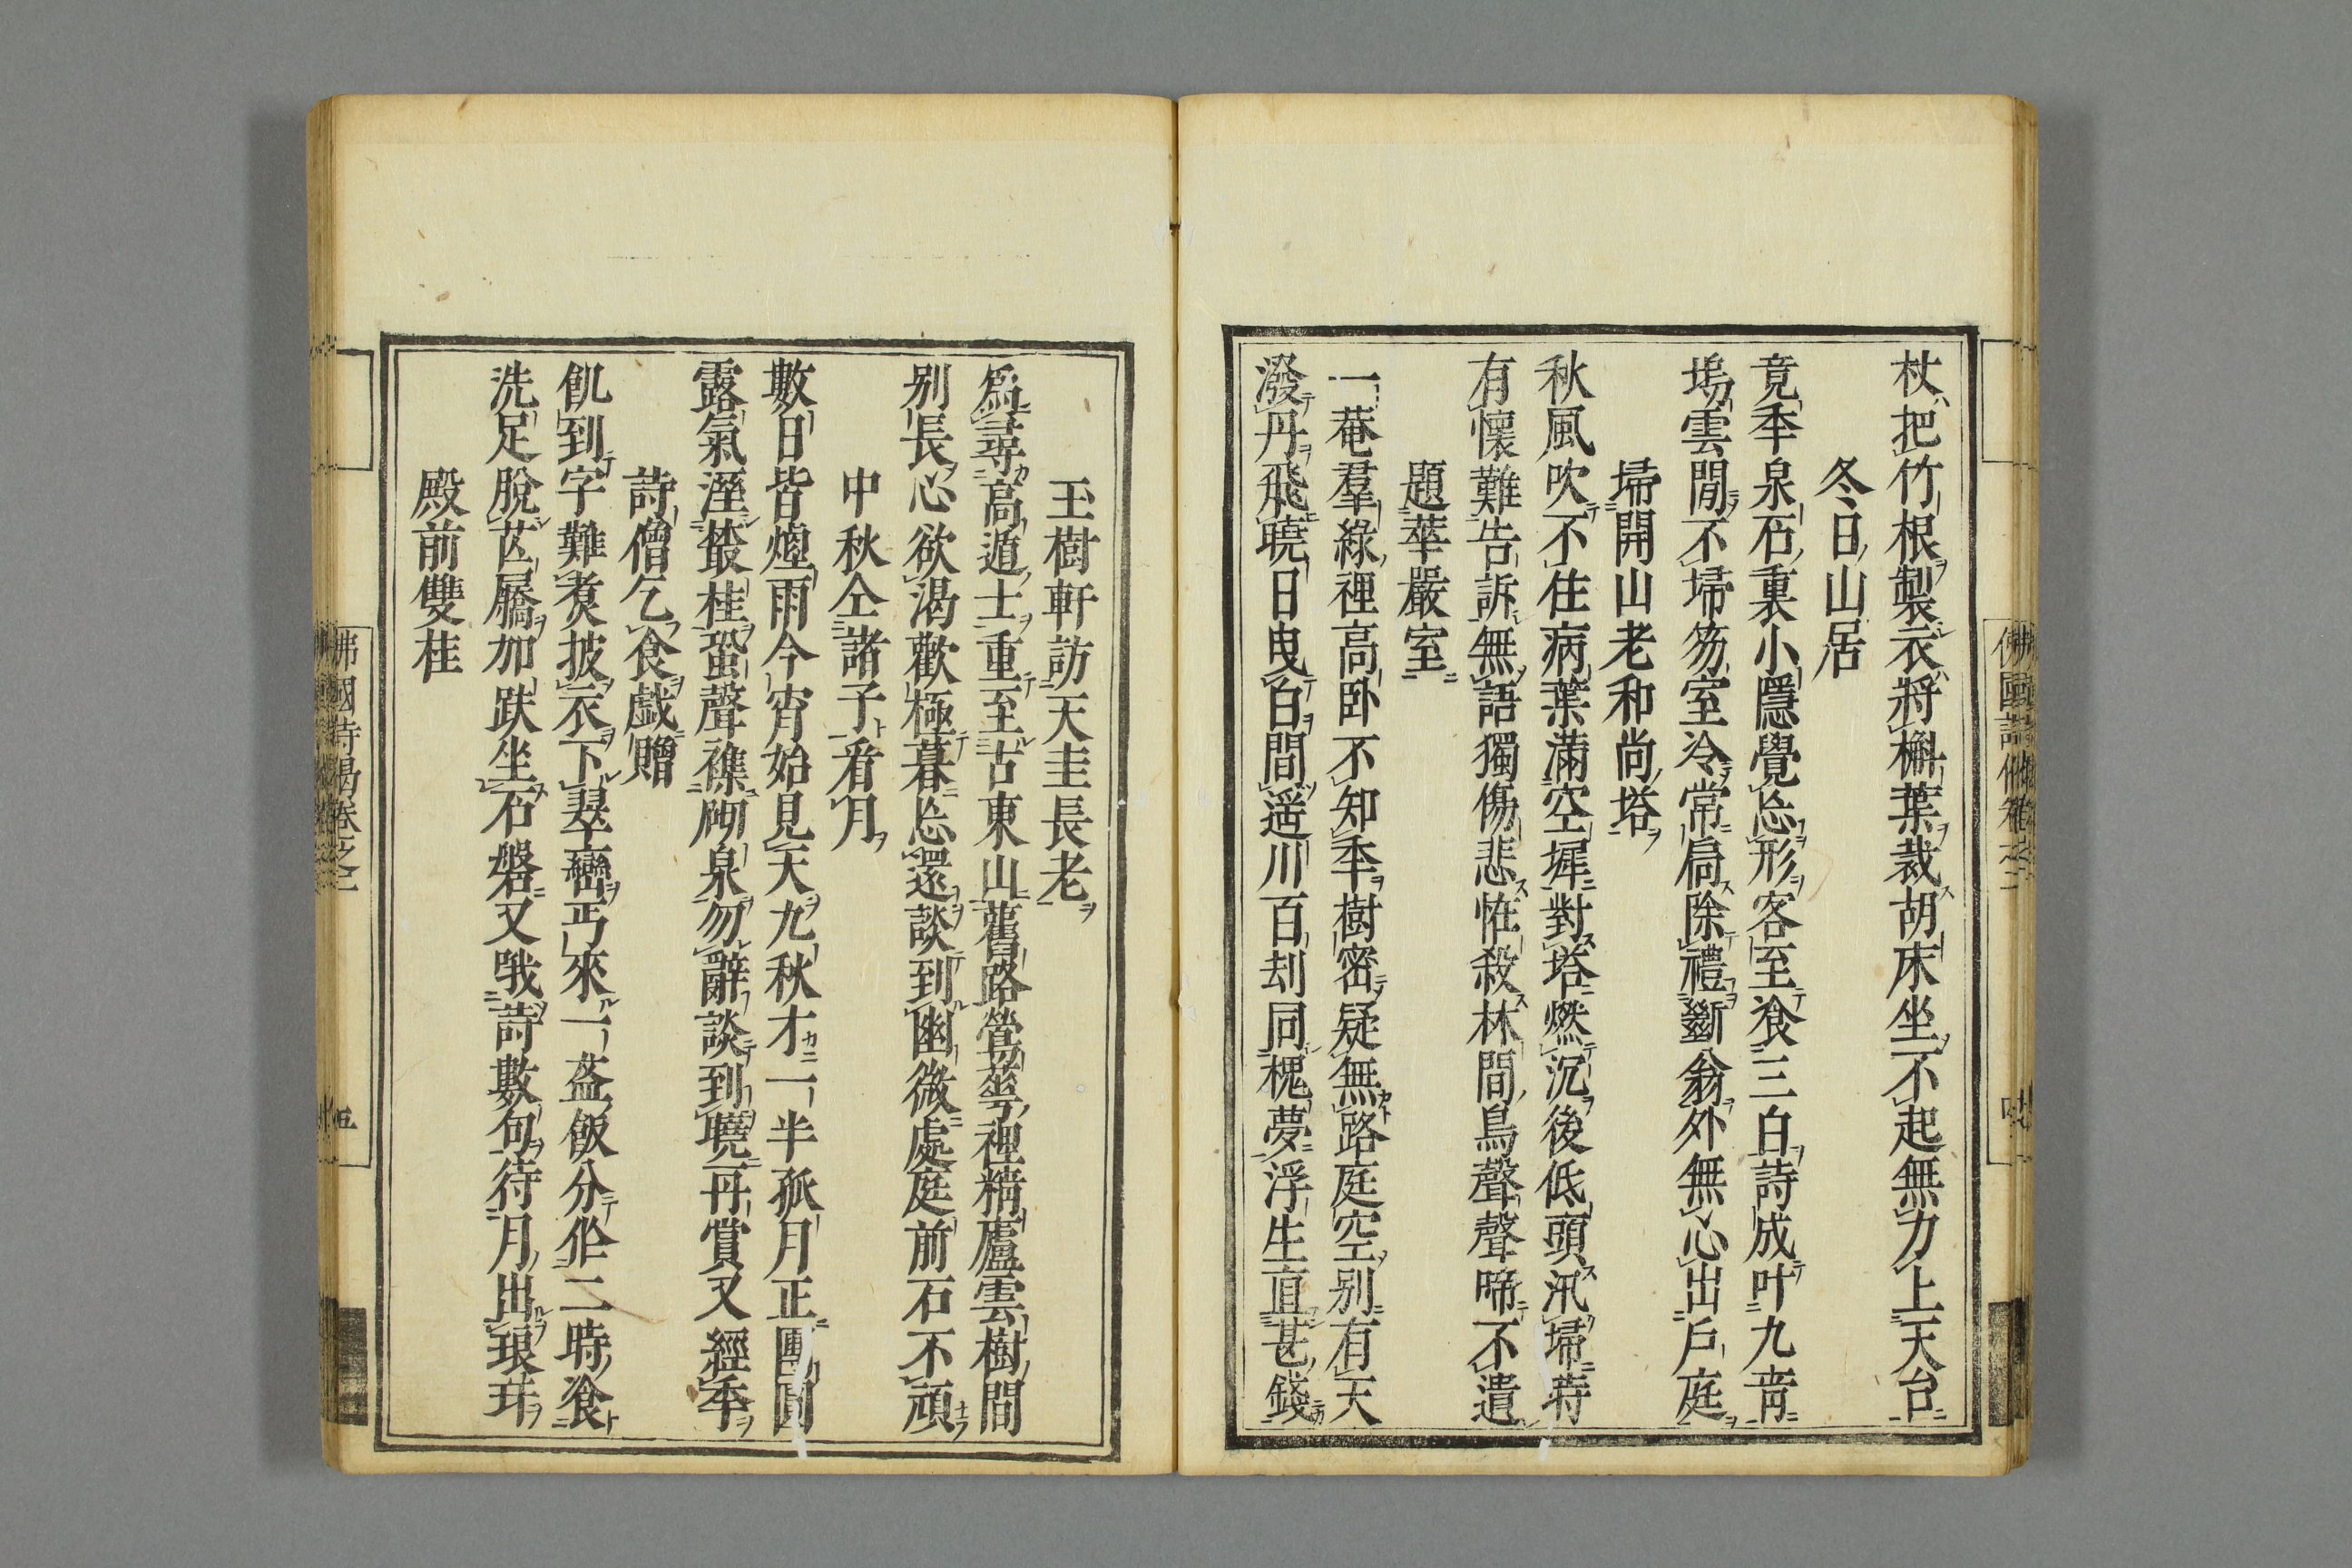 杖把竹根製衣將槲葉裁胡床坐不起無力上天台
冬日山居
竟年泉石裏小隱覺忘形客至飡三白詩成叶九青
塢雲閒不掃芴室冷常扃除禮斷翁外無心出戶庭
掃開山老和尚塔
秋風吹不住病葉滿空墀對塔燃沉後低頭汛掃時
有懷難告訴無語獨傷悲恠殺林間鳥聲聲啼不遣
題華嚴室
一菴羣綠裡高卧不知年樹密疑無路庭空别有天
潑丹飛曉日曳白間遥川百刧同槐夢浮生直甚錢
佛國詩偈卷之二
玉樹軒訪天圭長老
爲尋高遁士重至古東山舊路鶯蕚裡精廬雲樹間
别長心欲渴歡極暮忘還談到幽微處庭前石不頑
中秋仝諸子看月
數日皆煙雨今宵始見天九秋才一半孤月正團圓
露氣溼叢桂蛩聲襍硎泉勿辭談到曉再賞又經年
詩僧乞食戲贈
飢到字難煑披衣下翠巒丐來一盃飯分作二時飡
洗足脫芒屩加趺坐石磐又哦詩數句待月出琅玕
殿前雙桂
佛國詩偈卷之二
五